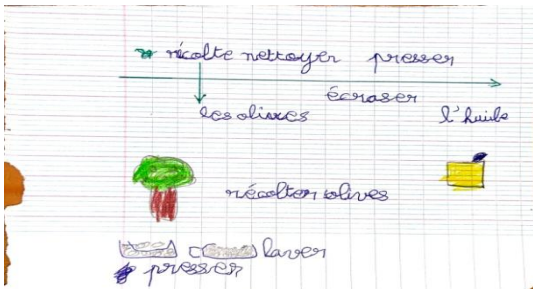 récolte nettoyer presser
écraser
les olives l'huile
récolter olives
laver
presser